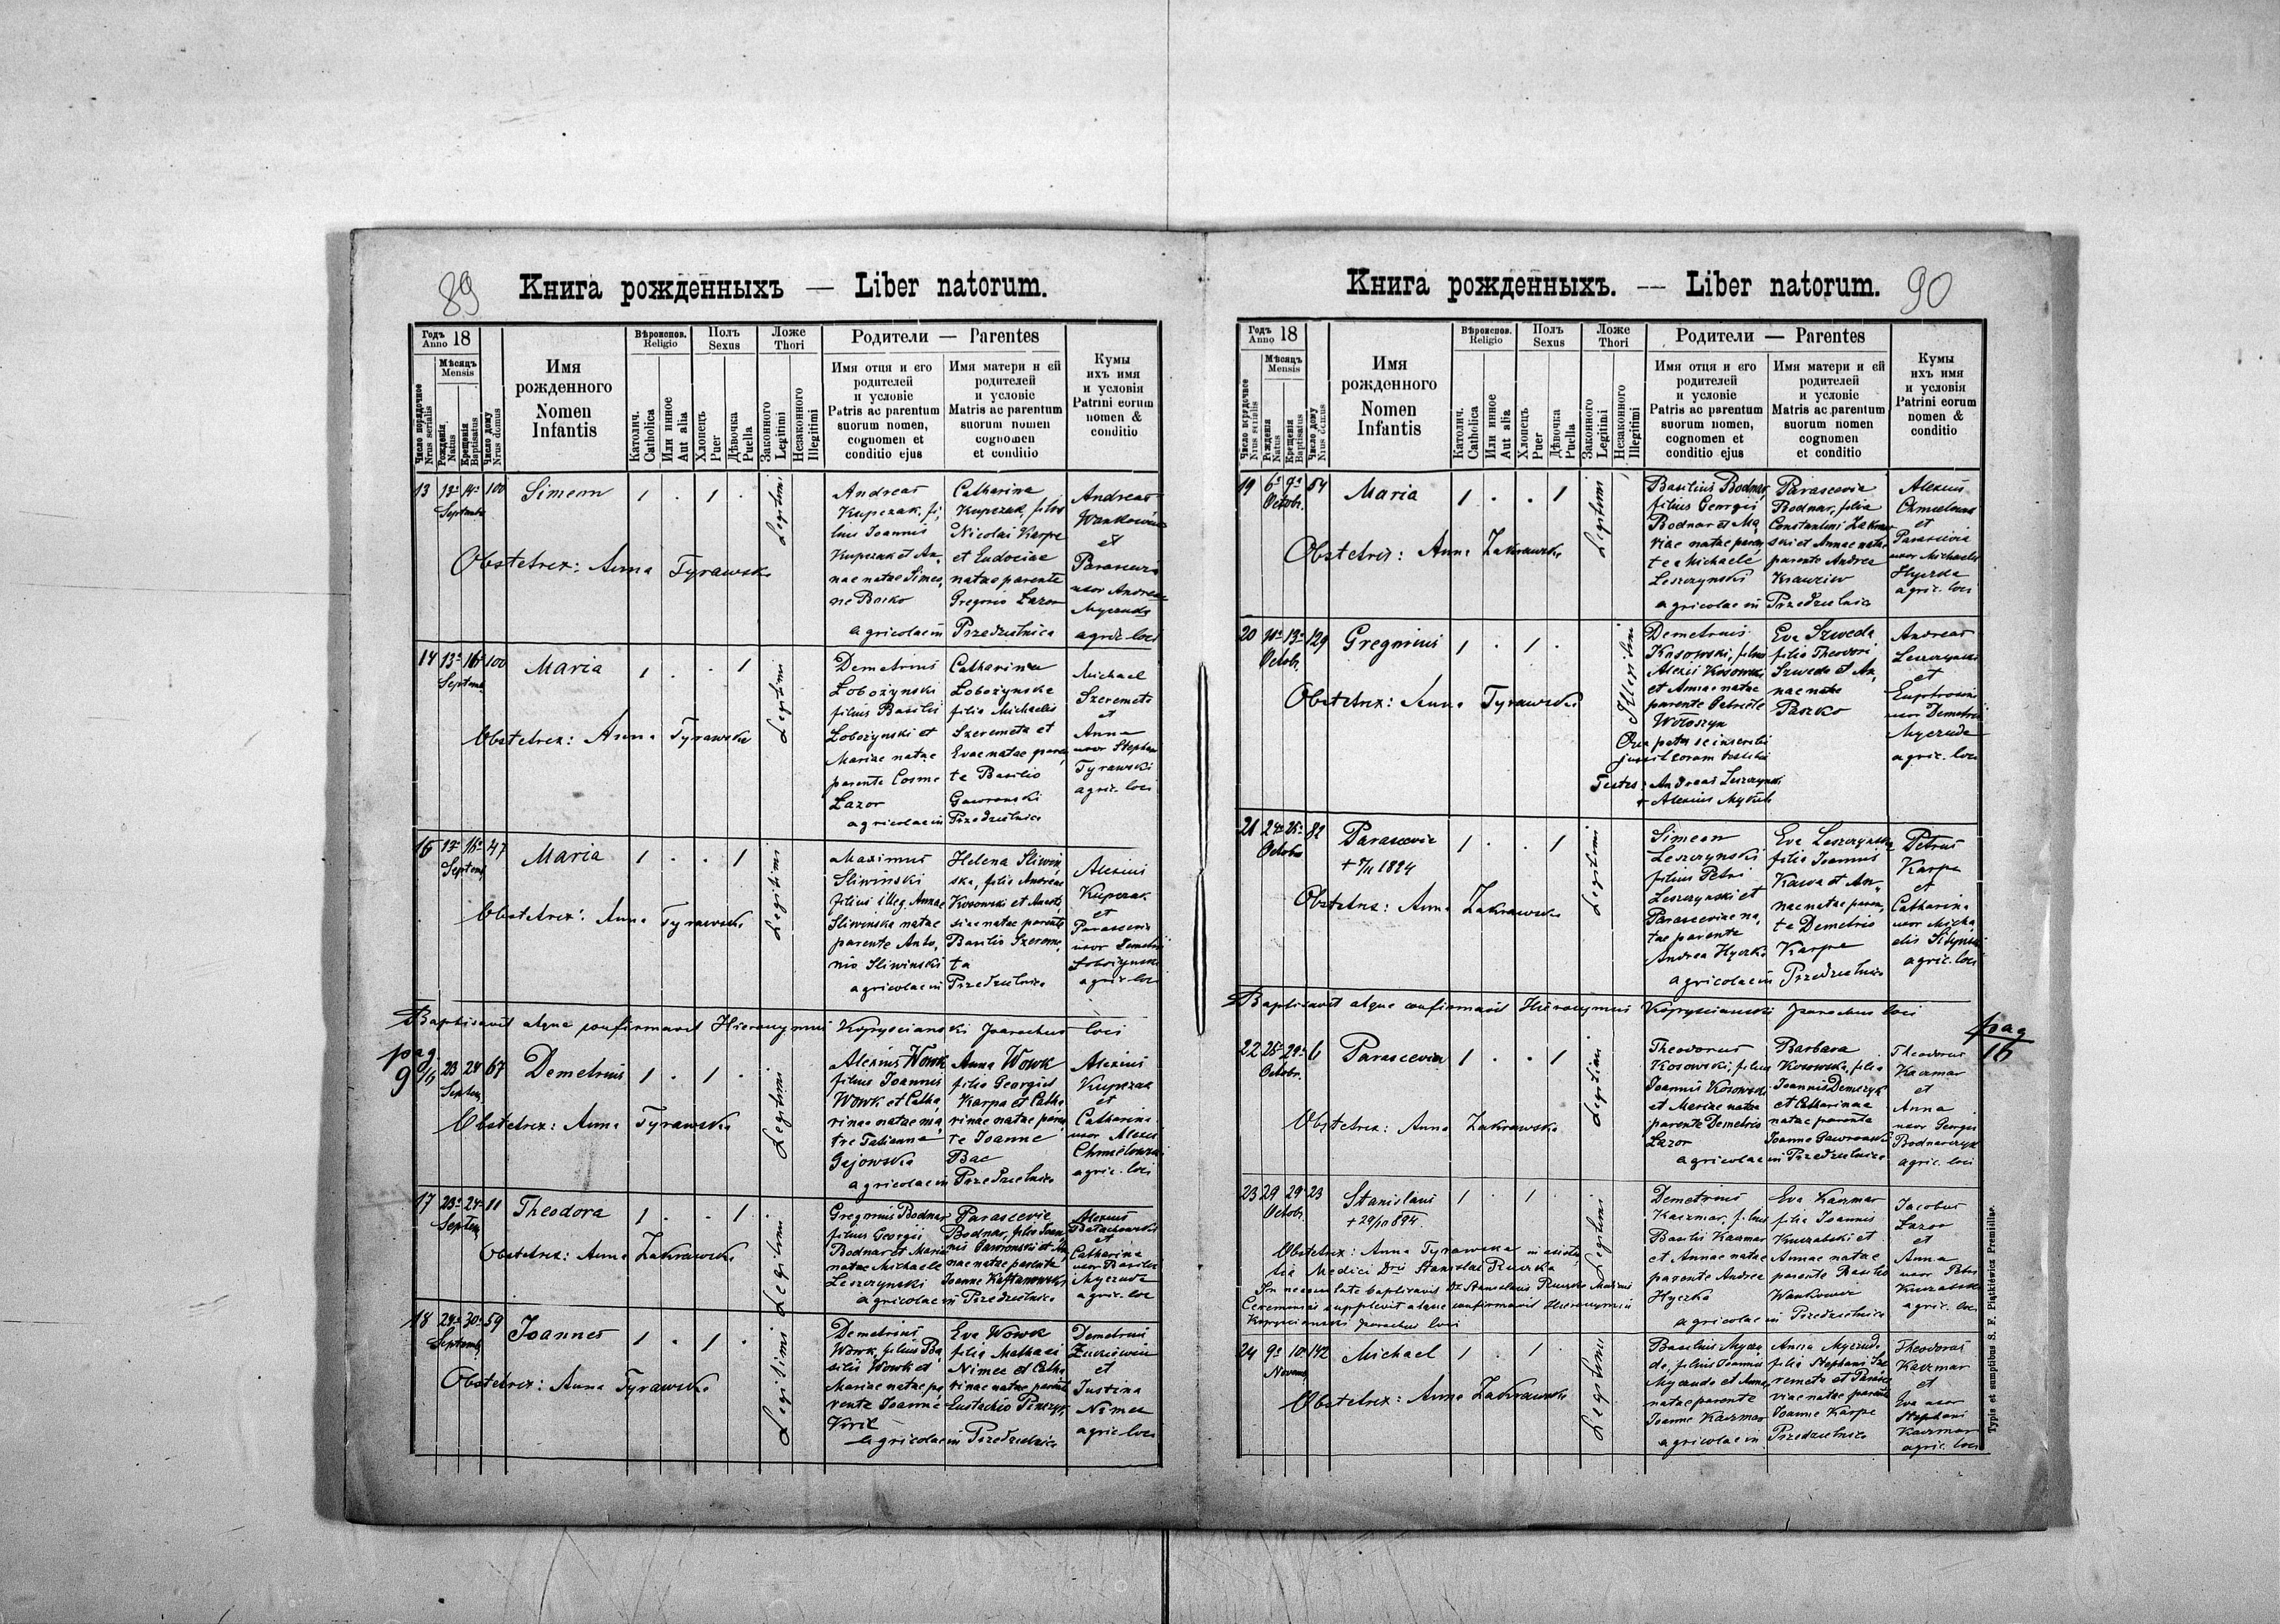 89
Книга рожденныхъ — Liber natorum.
Годъ Anno 18
Мѣсяцъ Mensis
Число порядочное Nrus serialis
Рожденія Natus
Крещенія Baptisatus
Число дому Nrus domus
Имя рожденного
Nomen Infantis
Вѣроиспов. Religio
Католич. Catholica
Или инное Aut alia
Полъ Sexus
Хлопецъ Puer
Дѣвочка Puella
Ложе Thori
Законного Legitimi
Незаконного Illegitimi
Родители — Parentes
Имя отця и его
родителей
и условіе
Patris ac parentum
suorum nomen,
cognomen et
conditio ejus
Имя матери и ей
родителей
и условіе
Matris ac parentum
suorum nomen
cognomen
et conditio
Кумы
ихъ имя
и условія
Patrini eorum
nomen &
conditio
13 13 14 100 Septemb Simeon 1 . 1 . Legitimi
Obstetrix: Anna Tyrawska
Andreas
Kupczak, fi,
lius Joannis
Kupczak et An,
nae natae Simeo,
ne Bosko
agricolae in
Catharina
Kupczak, filia
Nicolai Karpa
et Eudociae
natae parente
Gregorio Łazor
Przedzielnica
Andreas
Wankowicz
et
Parascevia
uxor Andreae
Myczuda
agric. loci
14 13 16 100 Septemb Maria 1 . . 1 Legitimi
Obstetrix: Anna Tyrawska
Demetrius
Łobożynski
filius Basilii
Łobożynski et
Mariae natae
parente Cosma
Łazor
agricolae in
Catharina
Łobożynska
filia Michaelis
Szeremeta et
Evae natae paren,
te Basilio
Gaworonski
Przedzielnica
Michael
Szeremeta
et
Anna
uxor Stephani
Tyrawski
agric. loci
15 16 47 Septemb Maria 1 . . 1 Legitimi
Obstetrix: Anna Tyrawska
Maximus
Sliwinski
filius illeg. Annae
Sliwinska natae
parente Anto,
nio Sliwinski
agricolae in
Helena Sliwin,
ska, filia Andreae
Kosowski et Anasta
siae natae parente
Basilio Szereme,
ta
Przedzielnica
Alexius
Kupczak
et
Parascevia
uxor Demetrii
Łobożynski
agric. loci
Baptisavit atque confirmavit Hieronymus Kopyscianski Parochus loci
pag.
9
23 24 67 Septem Demetrius 1 . 1 . Legitimi
Obstetrix: Anna Tyrawska
Alexius Wowk
filius Joannis
Wowk et Catha,
rinae natae ma,
tre Tatianna
Gajowska
agricolae in
Anna Wowk
filia Georgii
Karpa et Catha
rinae natae paren,
te Joanne
Bac
Przedzielnica
Alexius
Kupczak
et
Catharina
uxor Alexii
agric. loci
17 23 24 11 Septem Theodora 1 . . 1 Legitimi
Obstetrix: Anna Zakrawska
Gregorius Bodnar
filius Georgii
Bodnar et Mariae
natae Michaele
Leszczynski
agricolae in
Parascevia
Bodnar, filia Joan
nis Gaworonski et An,
nae natae parente
Joanne Kaftanowski
Przedzielnica
Alexius
et
Catharina
uxor Basilii
Myczuda
agric. loc
18 29 30 59 Septemb Joannes 1 . 1 . Legitimi
Obstetrix: Anna Tyrawska
Demetrius
Wowk, filius Ba,
silii Wowk et
Mariae natae pa
rente Joanne
agricolae in
Eva Wowk
filia Mathaei
Nimec et Catha
rinae natae parente
Eustachio
Przedzielnica
Demetrius
et
Justina
Nimec
agric. loci
Книга рожденныхъ. — Liber natorum.
90
Годъ Anno 18
Мѣсяцъ Mensis
Число порядочное Nrus serialis
Рожденія Natus
Крещенія Baptisatus
Число дому Nrus domus
Имя рожденного
Nomen Infantis
Вѣроиспов. Religio
Католич. Catholica
Или инное Aut alia
Полъ Sexus
Хлопецъ Puer
Дѣвочка Puella
Ложе Thori
Законного Legitimi
Незаконного Illegitimi
Родители — Parentes
Имя отця и его
родителей
и условіе
Patris ac parentum
suorum nomen,
cognomen et
conditio ejus
Имя матери и ей
родителей
и условіе
Matris ac parentum
suorum nomen
cognomen
et conditio
Кумы
ихъ имя
и условія
Patrini eorum
nomen &
conditio
19 6 9 54 Octob. Maria 1 . . 1 Legitimi
Obstetrix: Anna Zakrawska
Basilius Bodnar,
filius Georgii
Bodnar et Ma,
riae natae paren,
te a Michaele
Leszczynski
agricolae in
Parascevia
Bodnar, filia
Constantini Zakraw
ski et Annae natae
parente Andrea
Krawciw
Przedzielnica
Alexius
et
Parascevia
uxor Michaelis
Hyczka
agric. loci
20 13 129 Octob. Gregorius 1 . 1 . Illegitimi
Obstetrix: Anna Tyrawska
Demetrius
Kosowski, filius
Alexii Kosowski
et Annae natae
parente Petro
Wołoszyn
Qua pater se inscribi
jussit coram testibus
Testes: Andreas Leszczynski
+ Alexius
Eva Szweda
filia Theodori
Szweda et An,
nae natae
Paszko
Andreas
Leszczynski
et
Euphrosina
uxor Demetrii
Myczuda
agric. loci
21 24 25 82 Octobr Parascevia 1 . . 1 Legitimi
+ 9/11 1894
Obstetrix: Anna Zakrawska
Simeon
Leszczynski
filius Petri
Leszczynski et
Parasceviae na,
tae parente
Andrea Hyczka
agricolae in
Eva Leszczynska
filia Joannis
Kawa et An,
nae natae paren,
te Demetrio
Karpa
Przedzielnica
Petrus
Karpa
et
Catharina
uxor Micha,
elis
agric. loci
Baptisavit atque confirmavit Hieronymus Kopyscianski Parochus loci
pag
16
22 28 29 6 Octobr. Parascevia 1 . . 1 Legitimi
Obstetrix: Anna Zakrawska
Theodorus
Kosowski, filius
Joannis Kosowski
et Mariae natae
parente Demetrio
Łazor
agricolae in
Barbara
Kosowska, filia
Joannis Demczyk
et Catharinae
natae parente
Joanne Gaworonski
Przedzielnica
Theodorus
Kaczmar
et
Anna
uxor Georgii
Bodnarczyk
agric. loci
23 29 29 23 Octob. Stanislaus 1 . 1 . Legitimi
+ 29/10 894
Obstetrix: Anna Tyrawska in assisten,
tia Medici Dris Stanislai
In necessitate baptisavit Dr Stanislaus
Ceremonias supplevit atque confirmavit Hieronymus
Kopyscianski parochus loci
Demetrius
Kaczmar, filius
Basilii Kaczmar
et Annae natae
parente Andrea
Hyczka
Eva Kaczmar
filia Joannis
et
Annae natae
parente Basilio
Wankowicz
agricolae in Przedzielnica
Jacobus
Łazor
et
Anna
uxor Petri
agric. loci
24 9 10 142 Novemb Michael 1 . 1 . Legitimi
Obstetrix: Anna Zakrawska
Basilius Myczu,
da, filius Joannis
Myczuda et Annae
natae parente
Joanne Kaczmar
agricolae in
Anna Myczuda
filia Stephani Sze
remeta et Parasce
viae natae parente
Joanne Karpa
Przedzielnica
Theodorus
Kaczmar
et
Eva uxor
Stephani
Kaczmar
agric. loci
Typis et sumptibus S. F. Piątkiewicz Premisliae.